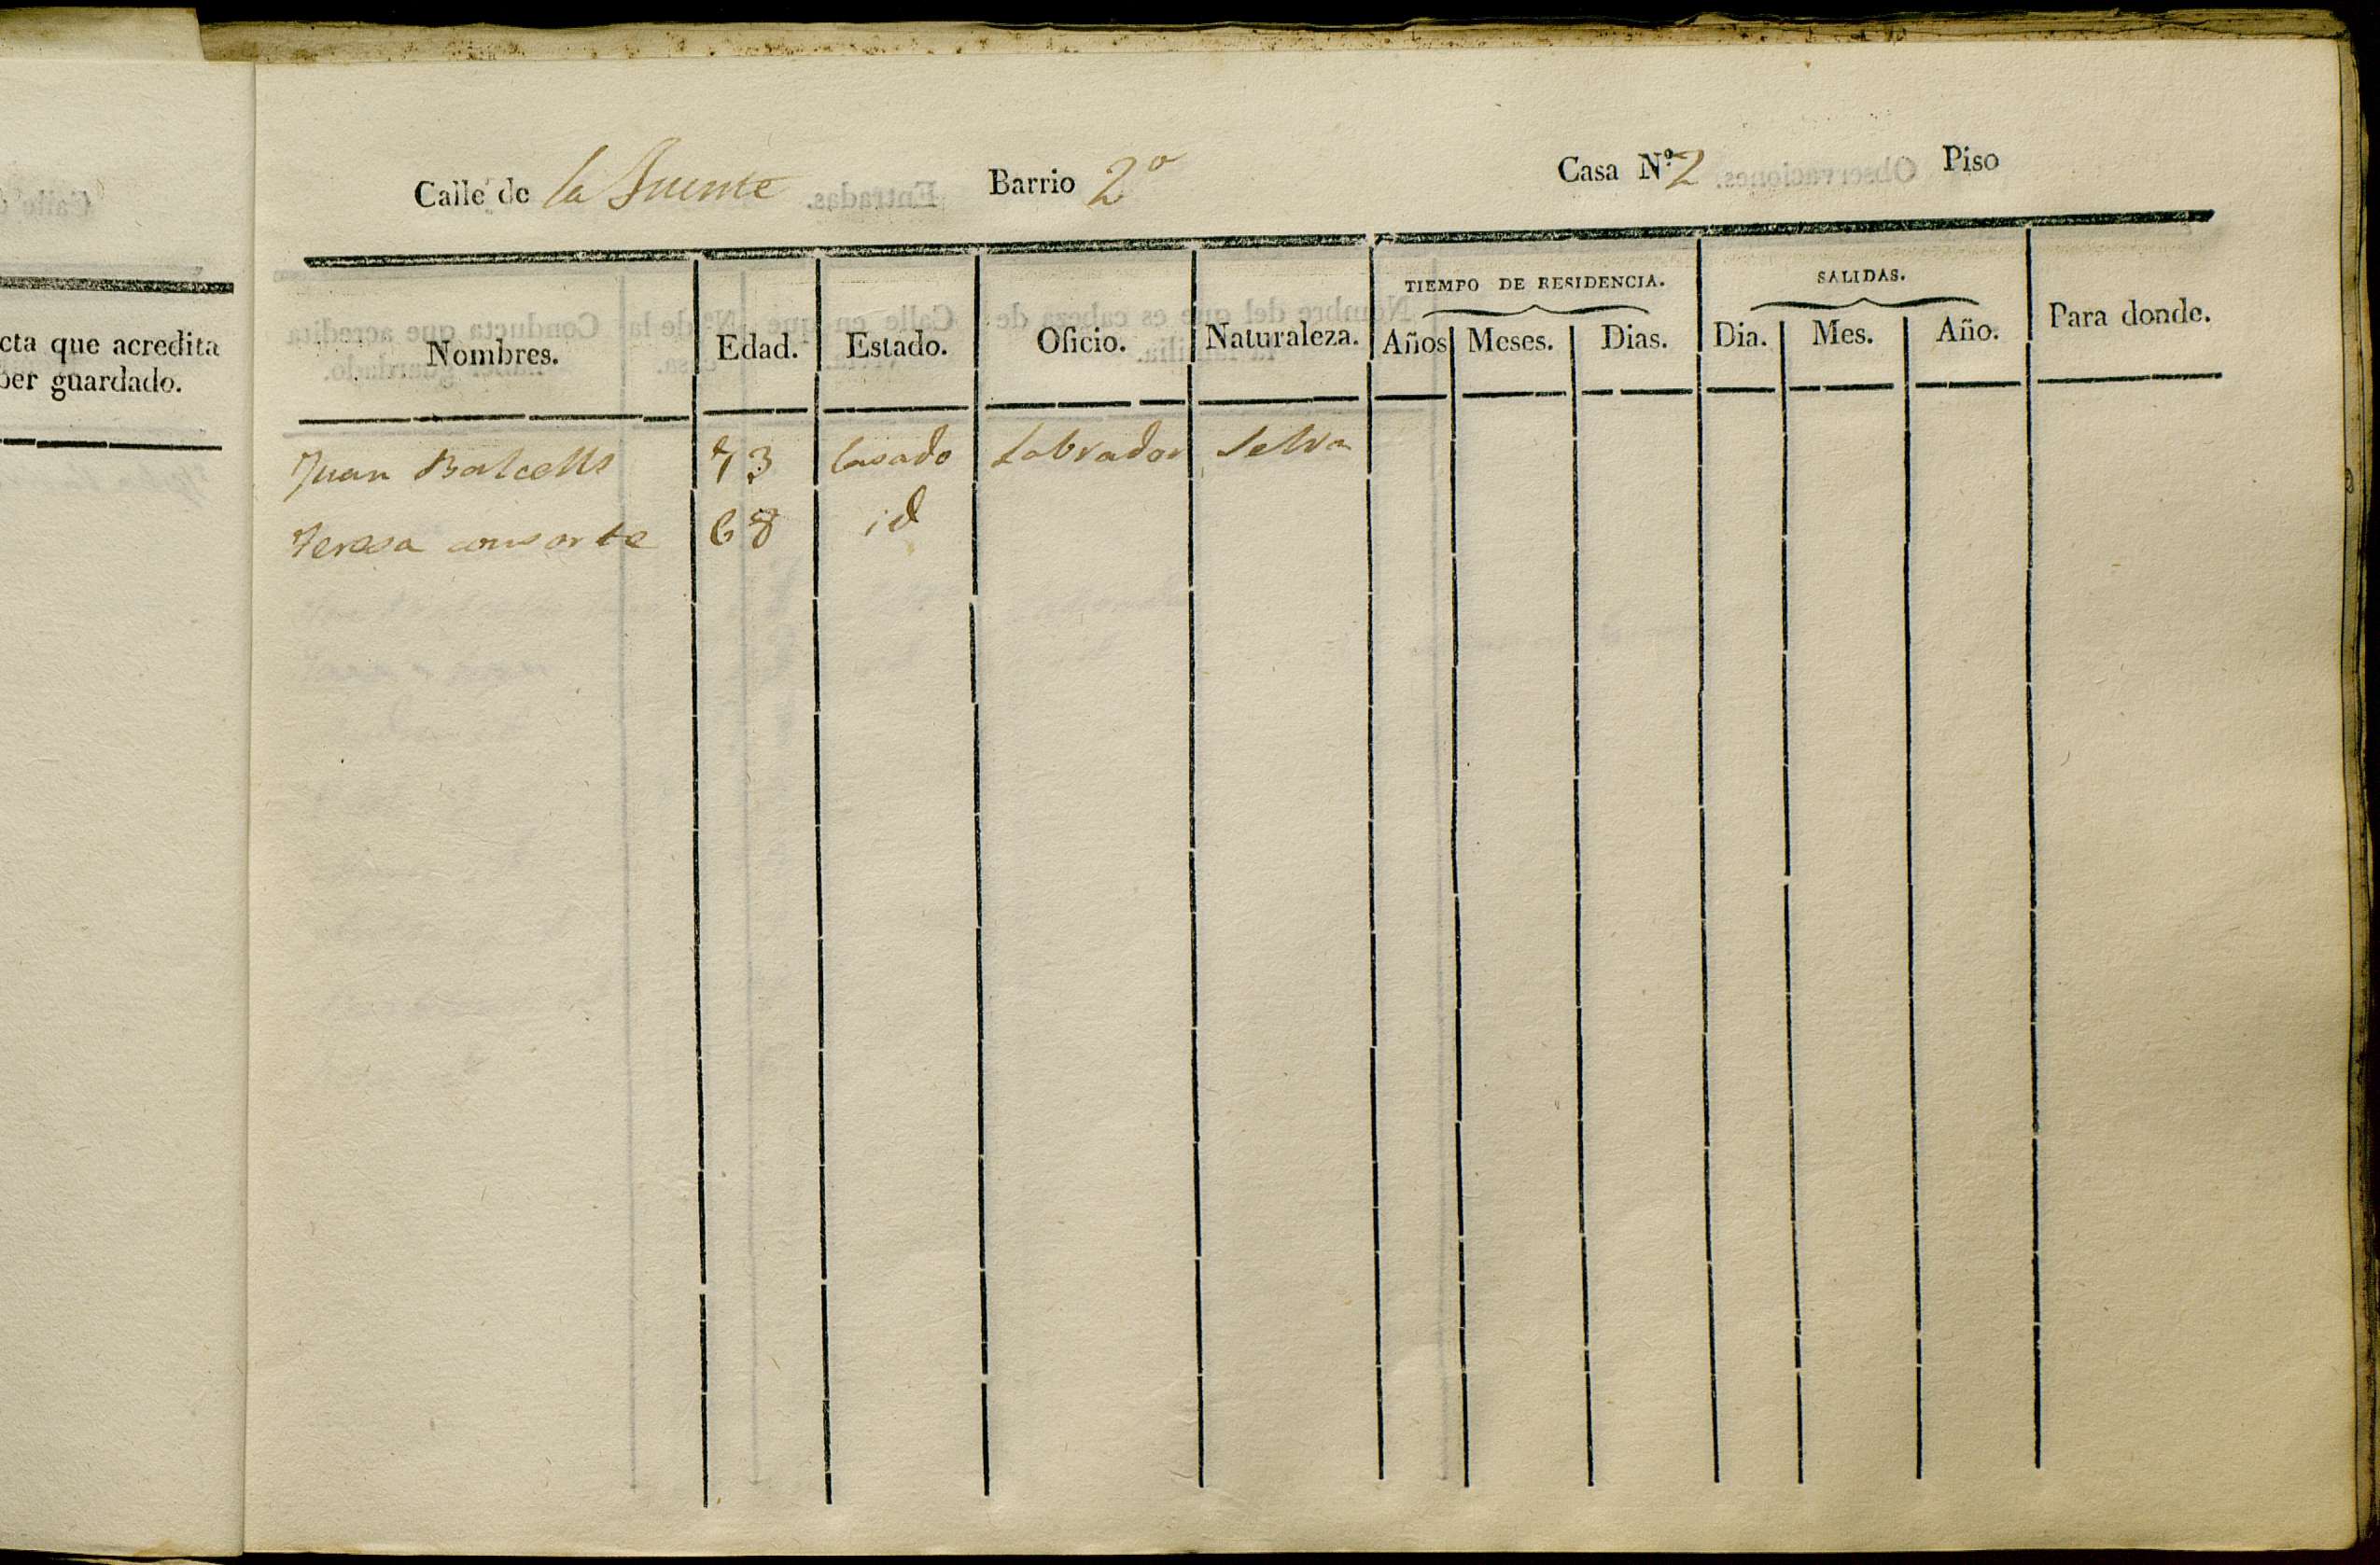 Calle de la Fuente Barrio 2º Casa Nº 2 Piso
cta que acredita
ber guardado.
TIEMPO DE RESIDENCIA. SALIDAS.
Nombres. Edad. Estado. Oficio. Naturaleza. Años Meses. Dias. Dia. Mes. Año. Para donde.
Juan Balcells 73 Casado Labrador Selva
Teresa consorte 68 id